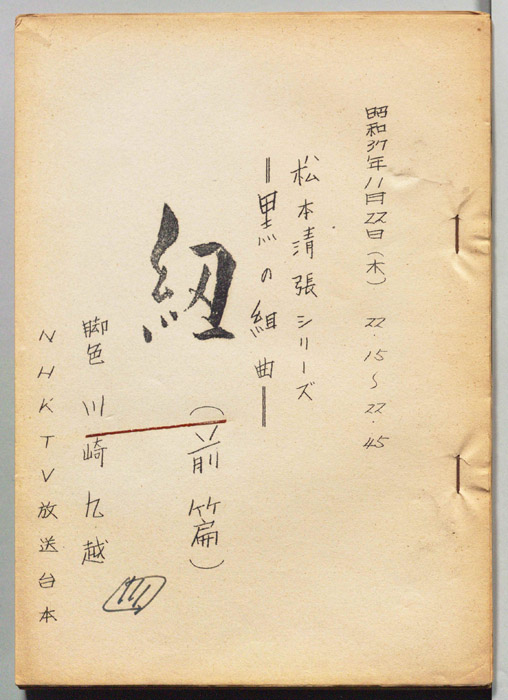 昭和37年11月22日(木) 22.15~22.45
松本清張シリーズ
=黒の組曲=
紐
(前篇)
脚色 川崎九越
NHKTV放送台本